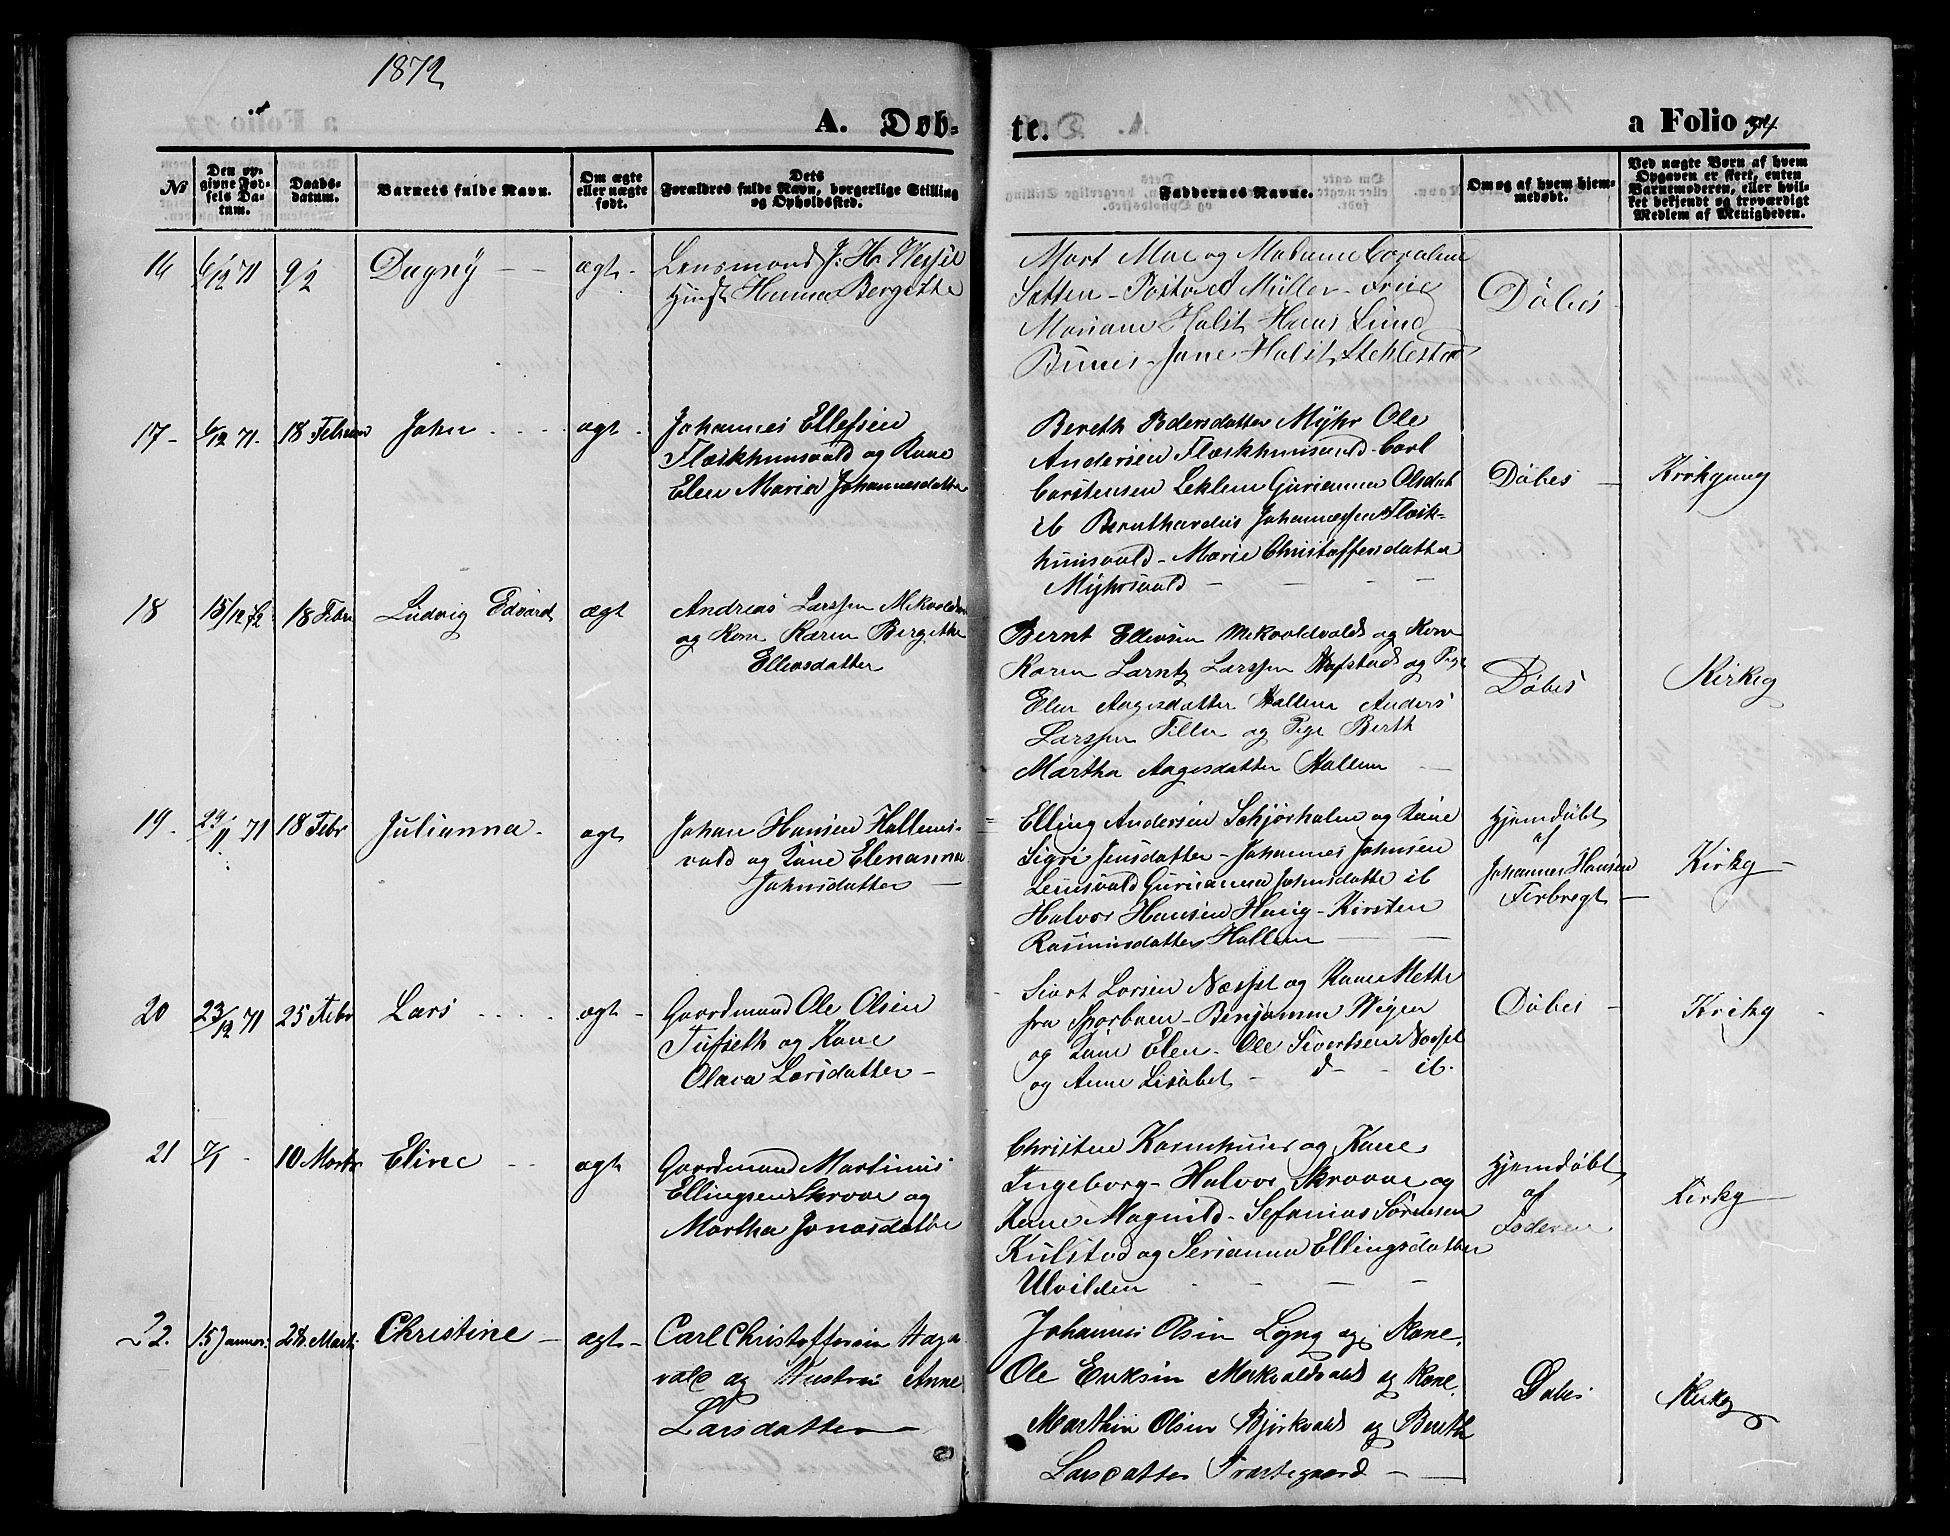 1872
A. Døb-
te.
a Folio 34
No
Den op-
givne Fød-
sels Da-
tum.
Daabs-
datum.
Barnets fulde Navn.
Om ægte
eller uægte
født.
Dets
Forældres fulde Navn, borgerlige Stilling
og Opholdssted.
Faddernes Navne.
Om og af hvem hjem-
medøbt.
Ved uægte Børn af hvem
Opgaven er skeet, enten
Barnemoderen, eller hvil-
ket bekjendt og troværdigt
Medlem af Menigheden.
16 6/12 71 9/2 Dagny - - ægt -
Lensmand J. H. Wessel
Hanna Bergitte
Mart Moe og Madame
Müller - Frue
Mariane Holst Hans Lund
Jane Holst Steklestad
Döbes
17 - 6/12 71. 18 Februar John . . . . agt -
Johannes Ellefsen
Flæskhuusvald og Kane
Elen Maria Johannesdatter
Bereth Pedersdatter Myhr Ole
Andersen Flæskhuusvald - Carl
Carstensen Leklem Gurianna Olsdat
ib Bernthardus Johannessen Flæsk-
huusvald - Marie Christoffersdatter
Myhrsvald - - - -
Döbes -
Kirkgang
18 15/12 18 Febr Ludvig Edvard ægt
Andreas Larssen
og Kone Karen Bergithe
Ellevsdatter
Bernt Ellevsen Mikvoldvald og Kone
Karen Larntz Larssen Hofstad og Pige
Elen Aagesdatter Hallem Anders
Larssen Tiller og Pige Berth
Martha Aagesdatter Hallem -
Döbes
Kirkeg
19 - 29/11 71 18 Febr Julianna - agt
Johan Hansen Hallems-
vald og Kane Elenanna
Johnsdatter -
Elling Andersen Schjørholm og Kane
Sigri Jensdatter - Johannes Johnsen
Leinsvald Gurianna Johnsdatte ib
Halvor Hansen Haug - Kirsten
Rasmusdatter Hallem - -
Hjemdöbt
af
Johannes Hansen
Ferbregt -
Kirkg -
20 23/12 71 25 Febr Lars . . . . agt -
Gaardmand Ole Olsen
Tufseth og Kane
Olava Larsdatter -
Sivert Larsen Næsset og Kane Mette
fra Sparbuen - Benjamin Wigen
og Kane Elen - Ole Sivertsen Næsset
og Anne Lisabet - d - - ib.
Döbes -
Kirkg -
21 7/1 - 10 Marts Eline - - agt
Gaardmand Martinus
Ellingsen Skrove og
Martha Jonasdatter
Christen Kornhuus og Kane
Ingeborg - Halvor Skrovve og
Kane Magnild - Sefanias Sörensen
Kulstad og Serianna Ellingsdatter
Ulvilden - - - -
Hjemdöbt
af
Faderen
Kirkg -
22. 15 Januar. 28 Marts Christine - agt -
Carl Christoffersen Haga
vald og Hustru Anne
Larsdatter
Johannes Olsen Lyng og Kone.
Ole Eriksen Mikvoldvald og Kone.
Marthin Olsen Bjørkvald og Bereth
Larsdatter Præstegaard - -
Dabes
Kirkg